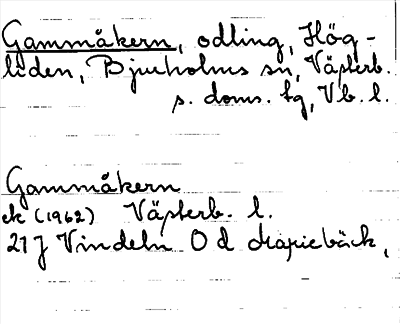 Gammåkern, odling, Hög-
liden, Bjurholms sn, Västerb.
s. doms. tg, Vb. l.
Gammåkern
ek (1962) Västerb. l.
21 J Vindeln O d